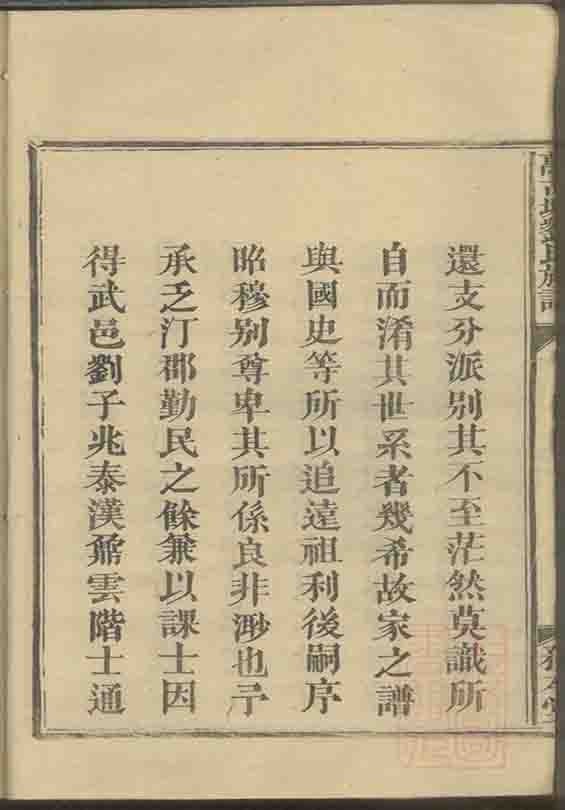 還支分派别其不至茫然莫識所
自而淆其世系者幾希故家之譜
與國史等所以追遠祖利後嗣序
昭穆别尊卑其所係良非渺也予
承乏汀郡勤民之餘兼以課士因
得武邑劉子兆泰漢鼐雲階士通